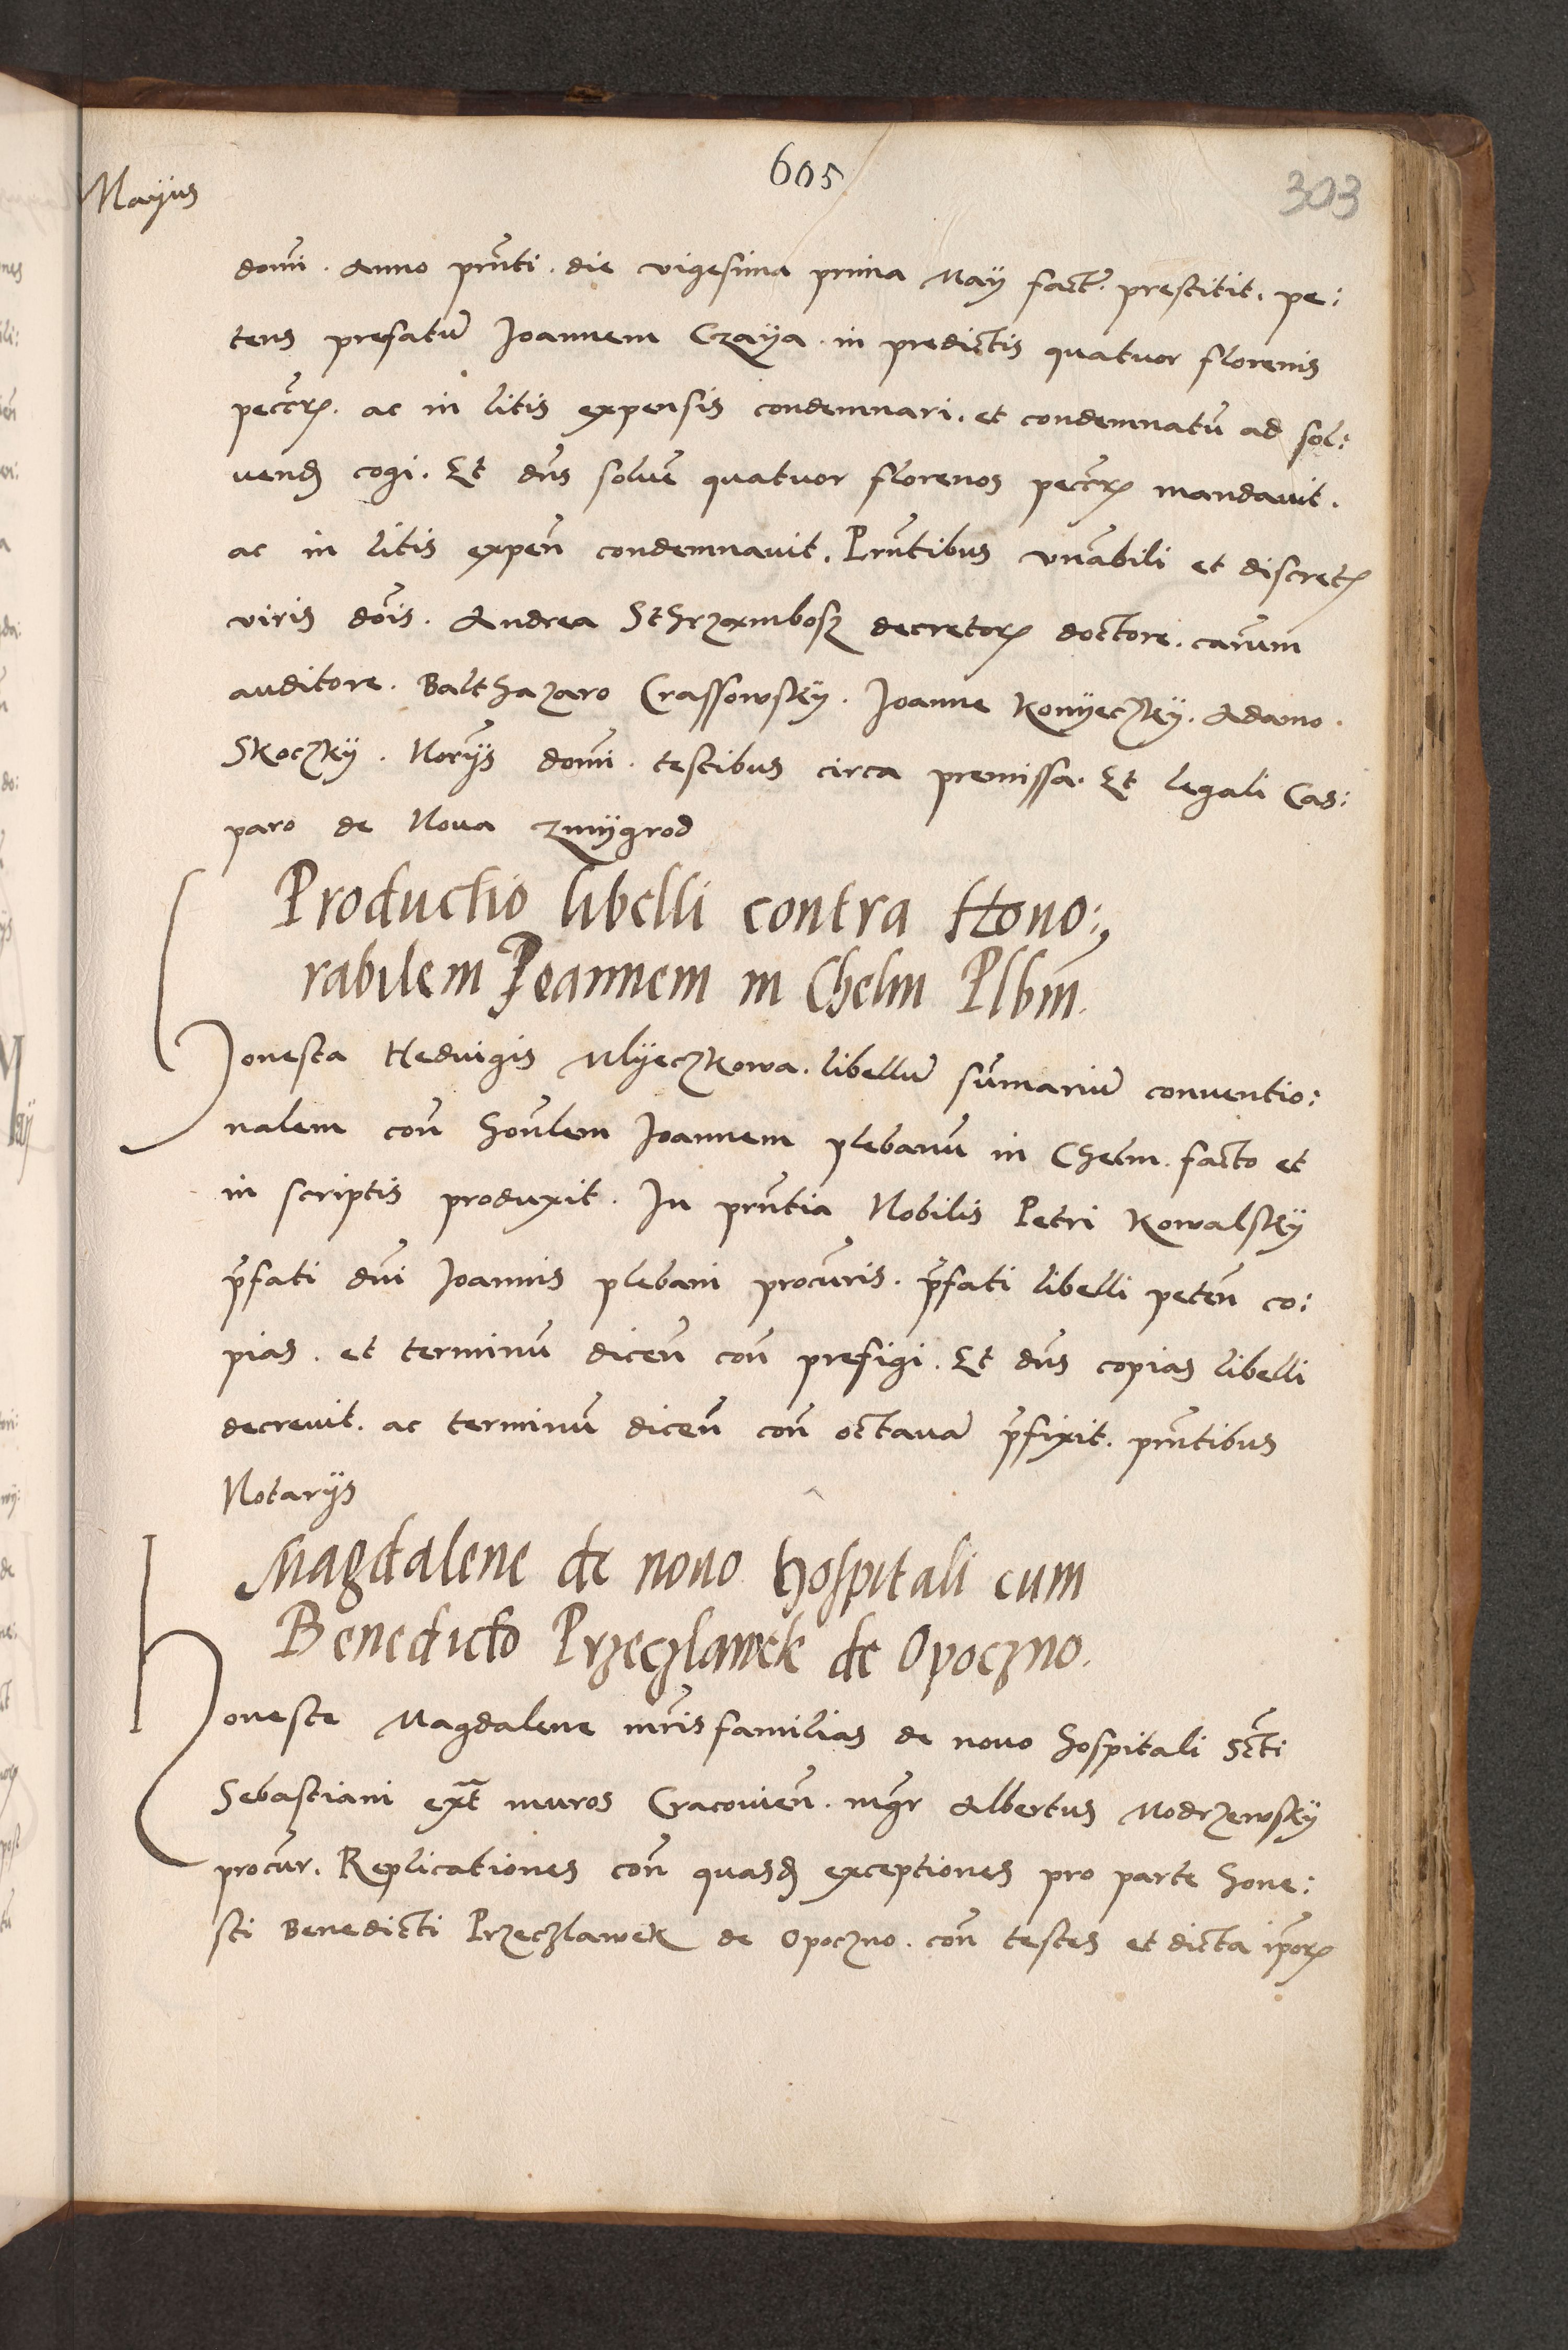 605
303
Mayus
domi . Anno prnti . die vigesima prima May fact . prestitit . pe:
tens prefatu Joannem Czaya . in predictis quatuor florenis
peccr . ac in litis expensis condemnari . et condemnatu ad sol:
uend cogi . Et dns solue quatuor florenos peccr mandauit .
ac in litis expen condemnauit . Prntibus vnabili et discret
viris dois . Andrea Sthrzambosz decretor doctore . carum
auditore . Balthazaro Crassowsky . Joanne Konyeczky . Adamo .
Skoczky . Norys domi . testibus circa premissa . Et legali Cas:
paro de Noua Zmygrod
Productio libelli contra Hono:,
rabilem Joannem in Chelm Plbm .
Honesta Hedwigis Mlyeczkowa . libellu sumariu conuentio:
nalem con honlem Joannem plebanu in Chelm . facto et
in scriptis produxit . In prntia Nobilis Petri Kowalsky
pfati dni Joannis plebani procuris . pfati libelli peten co:
pias . et terminu dicen con prefigi . Et dns copias libelli
decreuit . ac terminu dicen con octaua pfixit . prntibus
Notarys
Magdalene de nouo hospitali cum
Benedicto Przeczlawek de Opoczno .
Honeste Magdalene mrisfamilias de nouo hospitali Scti
Sebastiani ext muros Cracouien . mgr Albertus Modrzewsky
procur . Replicationes con quasd exceptiones pro parte hone:
sti Benedicti Przeczlawek de Opoczno . con testes et dicta ipor